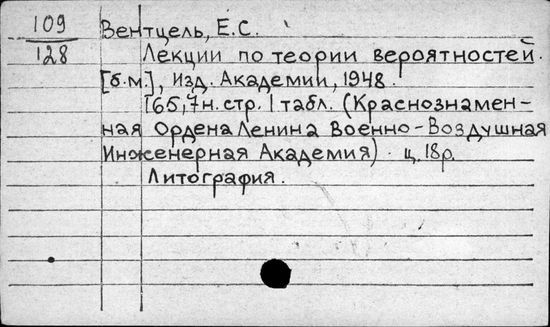 109
128
Вентцель, Е.С.
Лекции по теории вероятностей.
[б.м.], изд. Академии, 1948.
165,7н. стр. 1 табл. (Краснознамен-
ная Ордена Ленина Военно-Воздушная
Инженерная Академия). ц. 18р.
Литография.